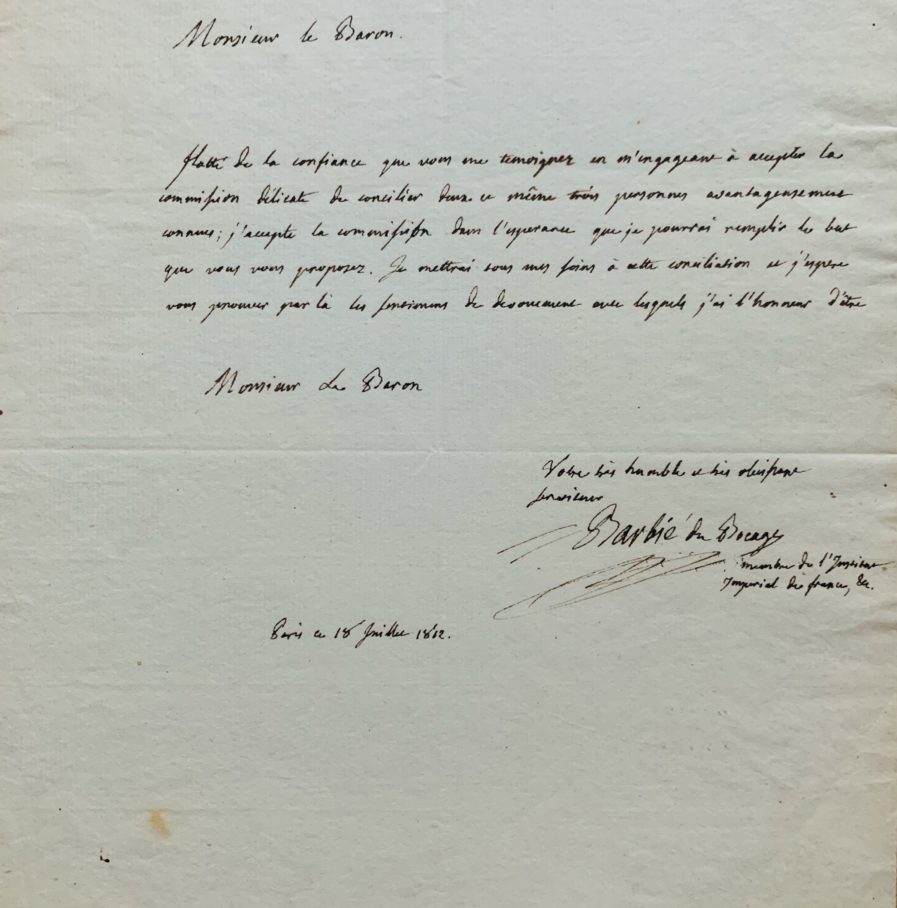 Monsieur le Baron.
flatté de la confiance que vous me temoignez en m'engageant à accepter la
commission délicate de concilier deux et même trois personnes avantageusement
connues; j'accepte la commission dans l'esperance que je pourrai remplir le but
que vous vous proposez. Je mettrai tous mes soins à cette conciliation et j'espere
vous prouver par là les sentimens de devouement avec lesquels j'ai l'honneur d'être
Monsieur Le Baron
Votre très humble et très obeissant
serviteur
Barbié du Bocage
membre de l'Institut
Imperial de france, &c.
Paris ce 18 Juillet 1812.